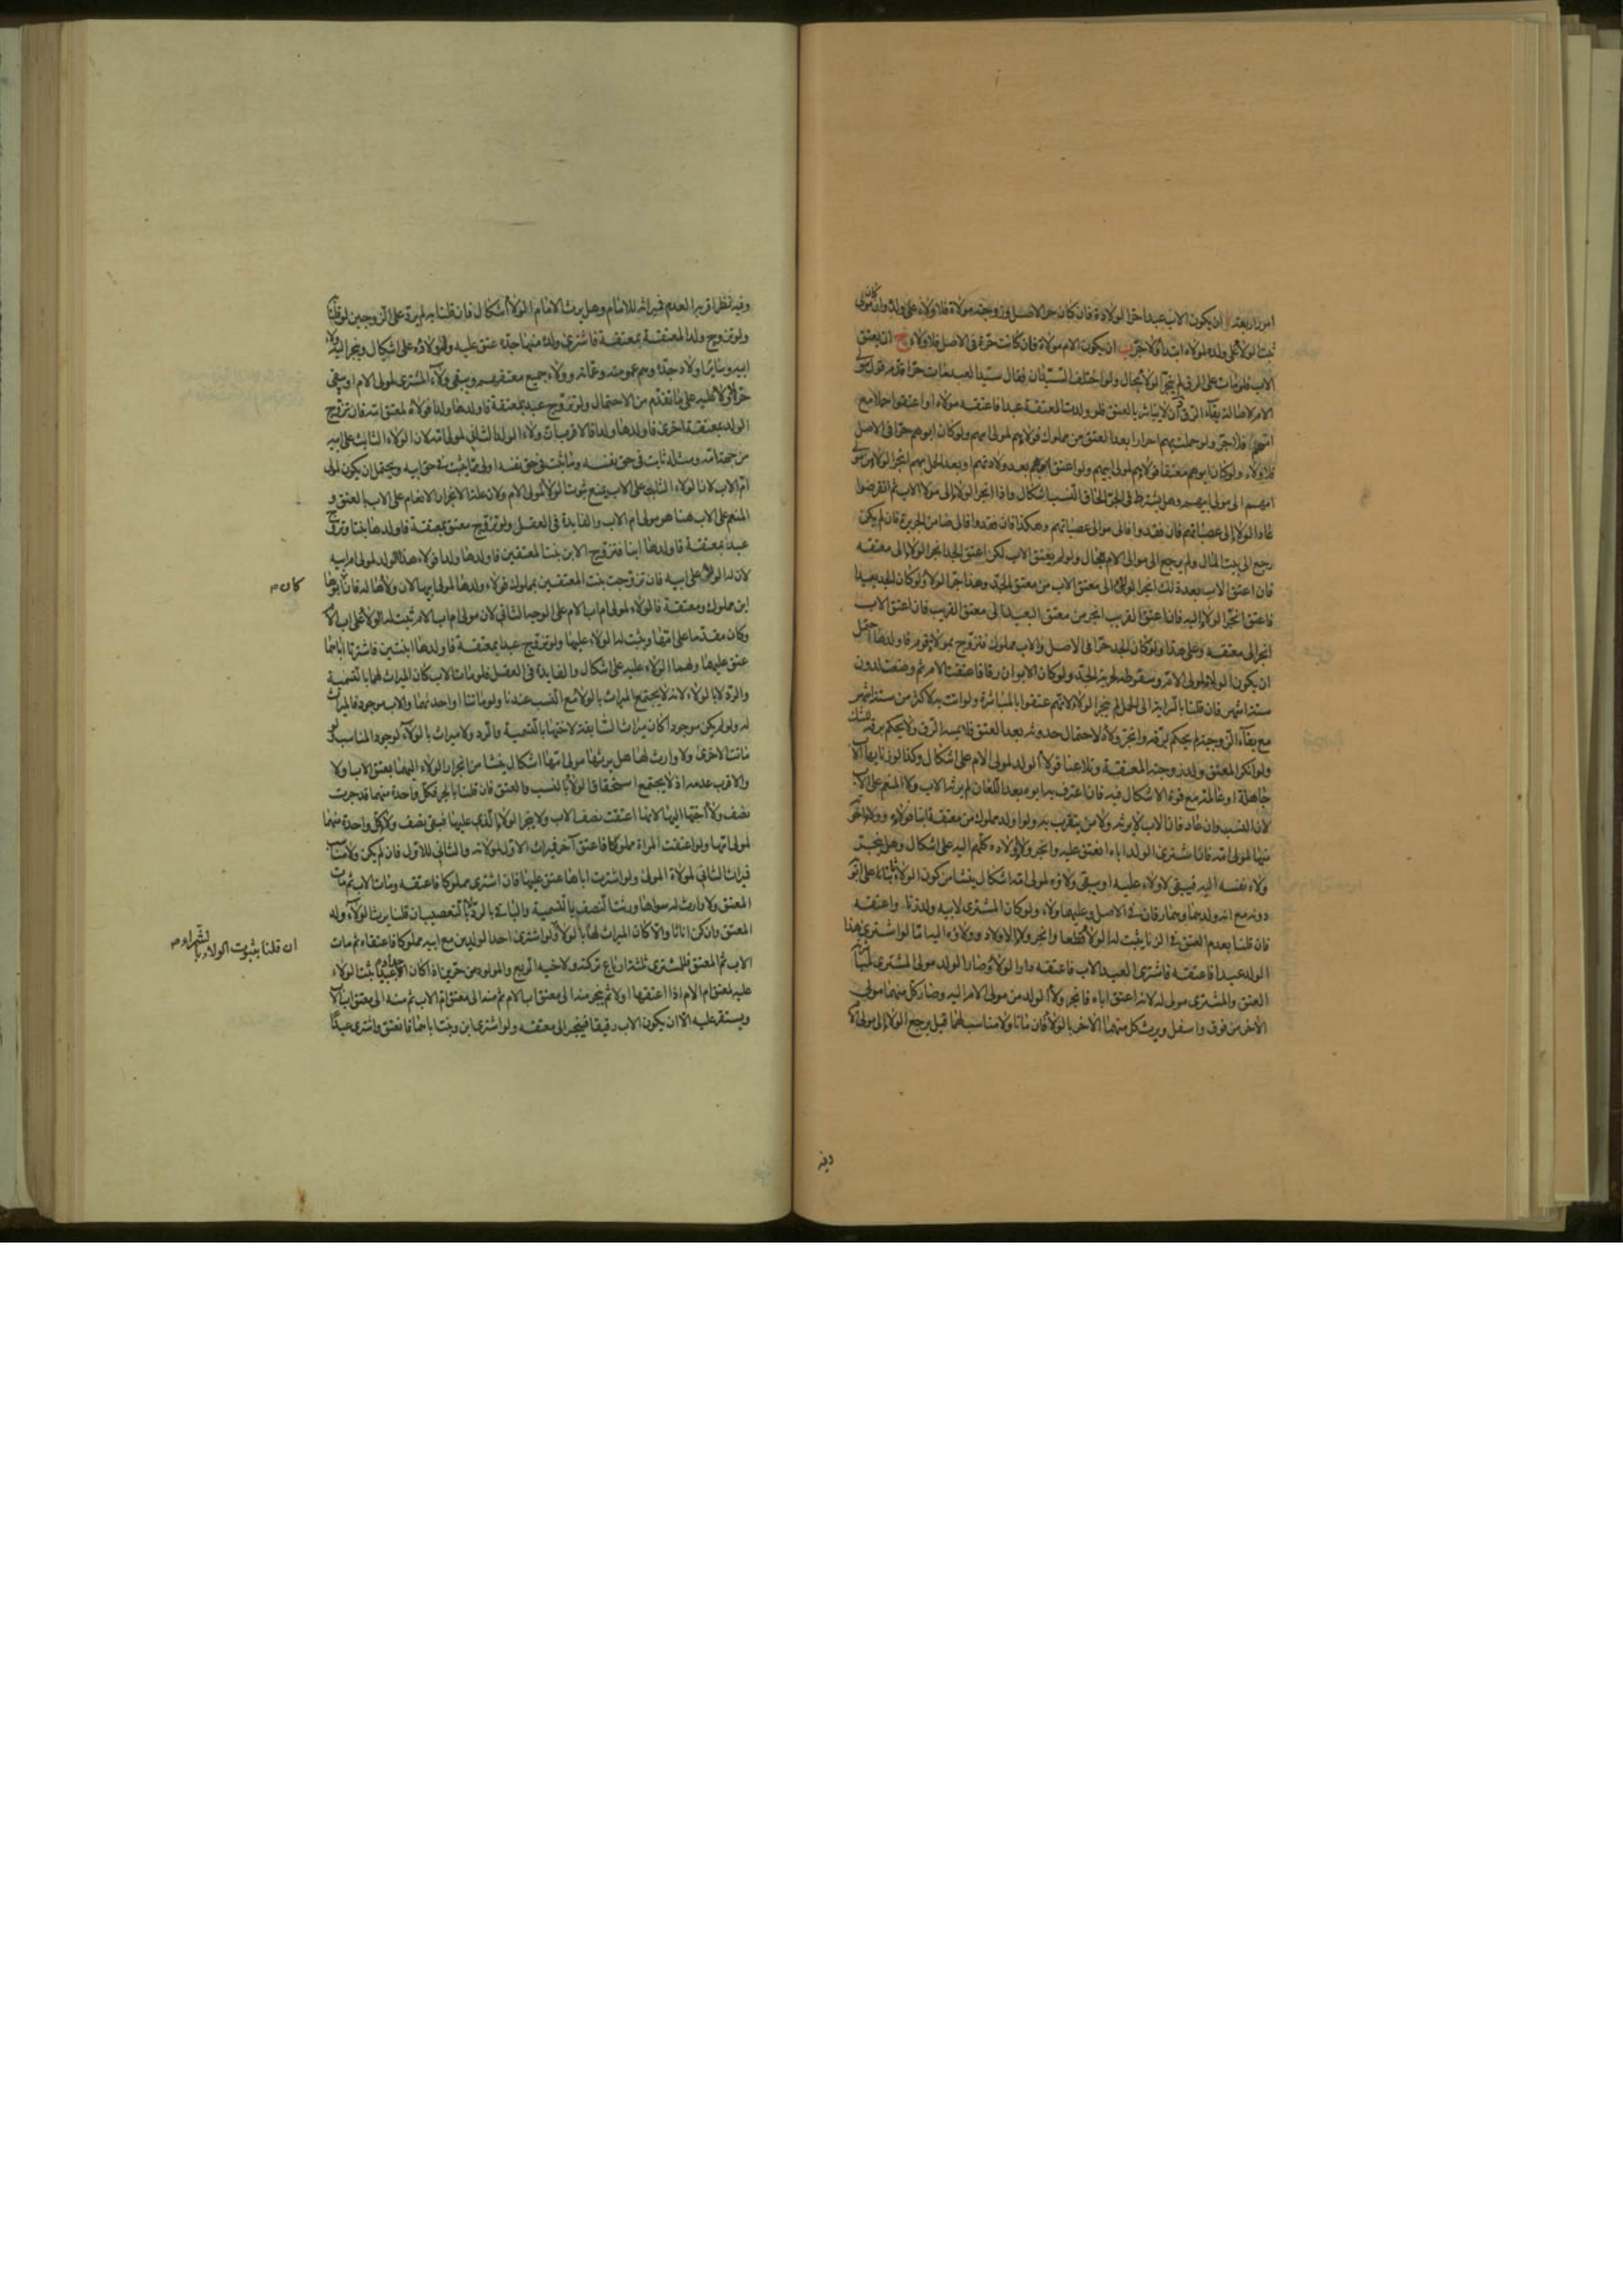 امور اربعة ا ان يكون الاب عبدا حتى الولادة فان كان حر الاصل وزوجته مولاة فلا ولاء على ولده وان كان مولى
ثبت الولاء على ولده لمولاه ابتداء ولا جر ب ان يكون الام مولاة فان كانت حرة في الاصل فلا ولاء ج ان يعتق
الاب فلو مات على الرق لم ينجر الولاء بحال ولو اختلف السيدان فقال سيد العبد مات حرا قدم قول مولى
الام لاصالة بقاء الرق د ان لا يباشر بالعتق فلو ولدت المعتقة عبدا فاعتقه مولاه او اعتقوا حملا مع
امهم فلا جر ولو حملت بهم احرارا بعد العتق من مملوك فولاؤهم لمولى امهم ولو كان ابوهم حرا في الاصل
فلا ولاء ولو كان ابوهم معتقا فولاؤهم لمولى ابيهم ولو اعتق ابوهم بعد ولادتهم او بعد الحمل بهم انجر الولاء من مولى
امهم الى مولى ابيهم وهل يشترط في الجر الحاق النسب اشكال واذا انجر الولاء الى مولى الاب ثم انقرضوا
عاد الولاء الى عصباتهم فان فقدوا فالى موالى عصباتهم وهكذا فان فقدوا فالى ضامن الجريرة فان لم يكن
رجع الى بيت المال ولم يرجع الى موالى الام بحال ولو لم يعتق الاب لكن اعتق الجد انجر الولاء الى معتقه
فان اعتق الاب بعد ذلك انجر الولاء الى معتق الاب من معتق الجد وهذا جر الولاء ولو كان الجد بعيدا
فاعتق انجر الولاء اليه فان اعتق القريب انجر من معتق البعيد الى معتق القريب فان اعتق الاب
انجر الى معتقه وعلى هذا ولو كان الجد حرا في الاصل والاب مملوك فتزوج بمولاة قوم فاولدها احتمل
ان يكون الولاء لمولى الام وسقوطه لحرية الجد ولو كان الابوان رقا فاعتقت الام ثم وضعت لدون
ستة اشهر فان قلنا بالسراية الى الحمل لم ينجر الولاء لانهم عتقوا بالمباشرة ولو اتت به لاكثر من ستة اشهر
مع بقاء الزوجية لم يحكم برقه وانجر ولاؤه لاحتمال حدوثه بعد العتق فلا يمسه الرق ولا يحكم برقه بالشك
ولو انكر المعتق ولد زوجته المعتقة وتلاعنا فولاء الولد لمولى الام على اشكال وكذا لو زنا بها
جاهلة او عالمة مع قوة الاشكال فيه فان اعترف به ابوه بعد اللعان لم يرثه الاب ولا المنعم على الاب
لان النسب وان عاد فان الاب لا يرثه ولا من يتقرب به ولو اولد مملوك من معتقة ابنا فولاؤه
لمولى امه فان اشترى الولد اباه انعتق عليه وانجر ولاء اولاده كلهم اليه على اشكال وهل ينجر
ولاء نفسه اليه فيبقى لا ولاء عليه او يبقى ولاؤه لمولى امه اشكال ينشأ من كون الولاء ثابتا على ابويه
دونه مع انه ولد بهما وهما رقان في الاصل وعليهما ولاء ولو كان المشترى لابيه ولد زنا واعتقه
فان قلنا بعدم العتق في الزنا يثبت له الولاء قطعا وانجر ولاء الاولاد وولاؤه اليه اما لو اشترى هذا
الولد عبدا فاعتقه فاشترى العبد الاب فاعتقه دار الولاء وصار الولد مولى المشترى
العتق والمشترى مولى له لانه اعتق اباه فانجر ولاء الولد من مولى الام اليه وصار كل منهما مولى
الاخر من فوق واسفل ويرث كل منهما الاخر بالولاء فان ماتا ولا مناسب لهما قيل يرجع الولاء الى مولى الام
وفيه
وفيه نظر اقربه العدم فميراثه للامام وهل يرث الامام الولاء اشكال فان قلنا به لم يرد على الزوجين لو قلنا
ولو تزوج ولد المعتقة بمعتقة فاشترى ولده منها جده عتق عليه وله ولاؤه على اشكال وينجر اليه ولاء
ابيه وسائر اولاد جده وهم عمومته وعماته وولاء جميع معتقيهم ويبقى ولاء المشترى لمولى الام او يبقى
حرا لا ولاء عليه على ما تقدم من الاحتمال ولو تزوج عبد بمعتقة فاولدها ولدا فولاؤه لمعتق امه فان تزوج
الولد بمعتقة اخرى فاولدها ولدا فالاقرب ان ولاء الولد الثاني لمولى امه لان الولاء الثابت على ابيه
من جهة امه ومثله ثابت في حق نفسه وما ثبت في حق نفسه اولى مما يثبت في حق ابيه ويحتمل ان يكون لمولى
ام الاب لان الولاء الثابت على الاب يمنع ثبوت الولاء لمولى الام ولان علة الانجرار الانعام على الاب بالعتق و
المنعم على الاب هنا هو مولى ام الاب والفايدة في العقل ولو تزوج معتق بمعتقة فاولدها بنتا وتزوج
عبد بمعتقة فاولدها ابنا فتزوج الابن بنت المعتقين فاولدها ولدا فولاء هذا الولد لمولى ام ابيه
لان له الولاء على ابيه فان تزوجت بنت المعتقين بمملوك فولاء ولدها لمولى ابيها لان ولاءها له فان كان ابوها
كان م
ابن مملوك ومعتقة فالولاء لمولى ام اب الام على الوجه الثاني لان مولى ام اب الام ثبت له الولاء على اب الام
وكان مقدما على امها وثبت له الولاء عليها ولو تزوج عبد بمعتقة فاولدها ابنتين فاشترتا اباهما
عتق عليهما ولهما الولاء عليه على اشكال والفايدة في العقل فلو مات الاب كان الميراث لهما بالتسمية
والرد لا بالولاء لانه لا يجتمع الميراث بالولاء مع النسب عندنا ولو ماتتا او احدتهما والاب موجود فالميراث
له ولو لم يكن موجودا كان ميراث السابقة لاختها بالتسمية والرد ولا ميراث بالولاء لوجود المناسب ولو
ماتت الاخرى ولا وارث لها هل يرثها مولى امها اشكال ينشأ من انجرار الولاء اليهما بعتق الاب او لا
والاقرب عدمه اذ لا يجتمع استحقاق الولاء بالنسب والعتق فان قلنا بالجر فكل واحدة منهما قد جرت
نصف ولاء اختها اليها لانها اعتقت نصف الاب ولا ينجر الولاء الذي عليها فبقى نصف ولاء كل واحدة منهما
لمولى امها ولو اعتقت المراة مملوكا فاعتق آخر فميراث الاول لمولاته والثاني للاول فان لم يكن ولا مناسب
فميراث الثاني لمولاة المولى ولو اشترت اباها عتق عليها فان اشترى مملوكا فاعتقه ومات الاب ثم مات
المعتق ولا وارث له سواها ورثت النصف بالتسمية والباقي بالرد لا بالتعصيب ان قلنا يرث الولاء ولد
المعتق وان كن اناثا والا كان الميراث لها بالولاء ولو اشترى احد الولدين مع ابيه مملوكا فاعتقاه ثم مات
ان قلنا بثبوت الولاء بالشراء م
الاب ثم المعتق فللمشترى ثلثة ارباع تركته ولاخيه الربع والمولود من حرين اذا كان اجداده عبيدا يثبت الولاء
عليه لمعتق ام الام اذا اعتقها اولا ثم ينجر منه الى معتق اب الام ثم منه الى معتق ام الاب ثم منه الى معتق اب الاب
ويستقر عليه الا ان يكون الاب رقيقا فينجر الى معتقه ولو اشترى ابن وبنت اباهما فانعتق واشترى عبدا